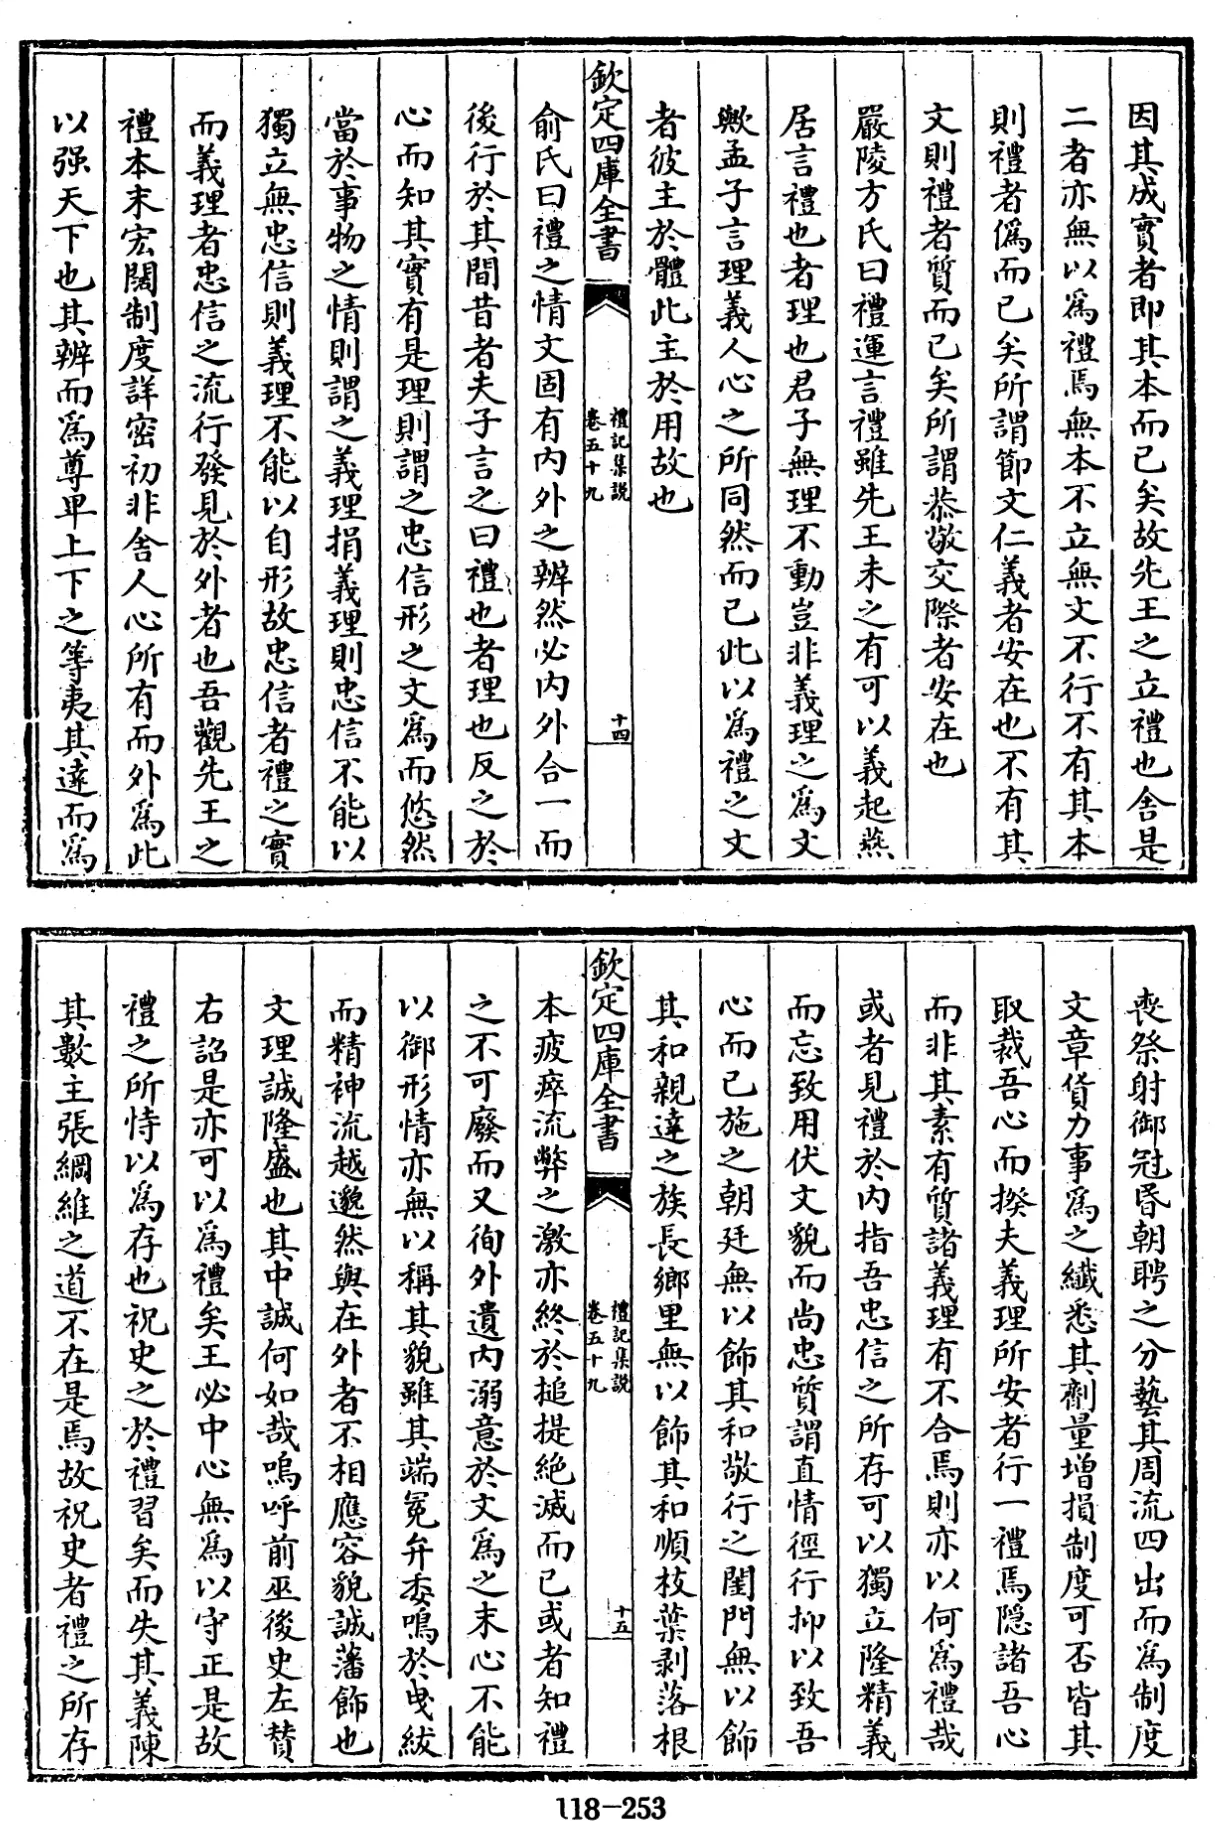 因其成實者即其本而已矣故先王之立禮也舍是
二者亦無以為禮焉無本不立無文不行不有其本
則禮者偽而已矣所謂節文仁義者安在也不有其
文則禮者質而已矣所謂恭敬交際者安在也
嚴陵方氏曰禮運言禮雖先王未之有可以義起燕
居言禮也者理也君子無理不動豈非義理之為文
歟孟子言理義人心之所同然而已此以為禮之文
者彼主於體此主於用故也
欽定四庫全書
禮記集說
卷五十九
十四
俞氏曰禮之情文固有内外之辨然必内外合一而
後行於其間昔者夫子言之曰禮也者理也反之於
心而知其實有是理則謂之忠信形之文為而悠然
當於事物之情則謂之義理捐義理則忠信不能以
獨立無忠信則義理不能以自形故忠信者禮之實
而義理者忠信之流行發見於外者也吾觀先王之
禮本末宏闊制度詳密初非舍人心所有而外為此
以强天下也其辨而為尊卑上下之等夷其達而為
喪祭射御冠昏朝聘之分藝其周流四出而為制度
文章貨力事為之纖悉其劑量增損制度可否皆其
取裁吾心而揆夫義理所安者行一禮焉隠諸吾心
而非其素有質諸義理有不合焉則亦以何為禮哉
或者見禮於内指吾忠信之所存可以獨立隆精義
而忘致用伏文貌而尚忠質謂直情徑行抑以致吾
心而已施之朝廷無以飾其和敬行之閨門無以飾
其和親達之族長鄉里無以飾其和順枝葉剥落根
欽定四庫全書
禮記集說
卷五十九
十五
本疲瘁流弊之激亦終於搥提絶滅而已或者知禮
之不可廢而又徇外遺内溺意於文為之末心不能
以御形情亦無以稱其貌雖其端冕弁委鳴於曵紱
而精神流越邈然與在外者不相應容貌誠藩飾也
文理誠隆盛也其中誠何如哉嗚呼前巫後史左贊
右詔是亦可以為禮矣王必中心無為以守正是故
禮之所恃以為存也祝史之於禮習矣而失其義陳
其數主張綱維之道不在是焉故祝史者禮之所存
118-253